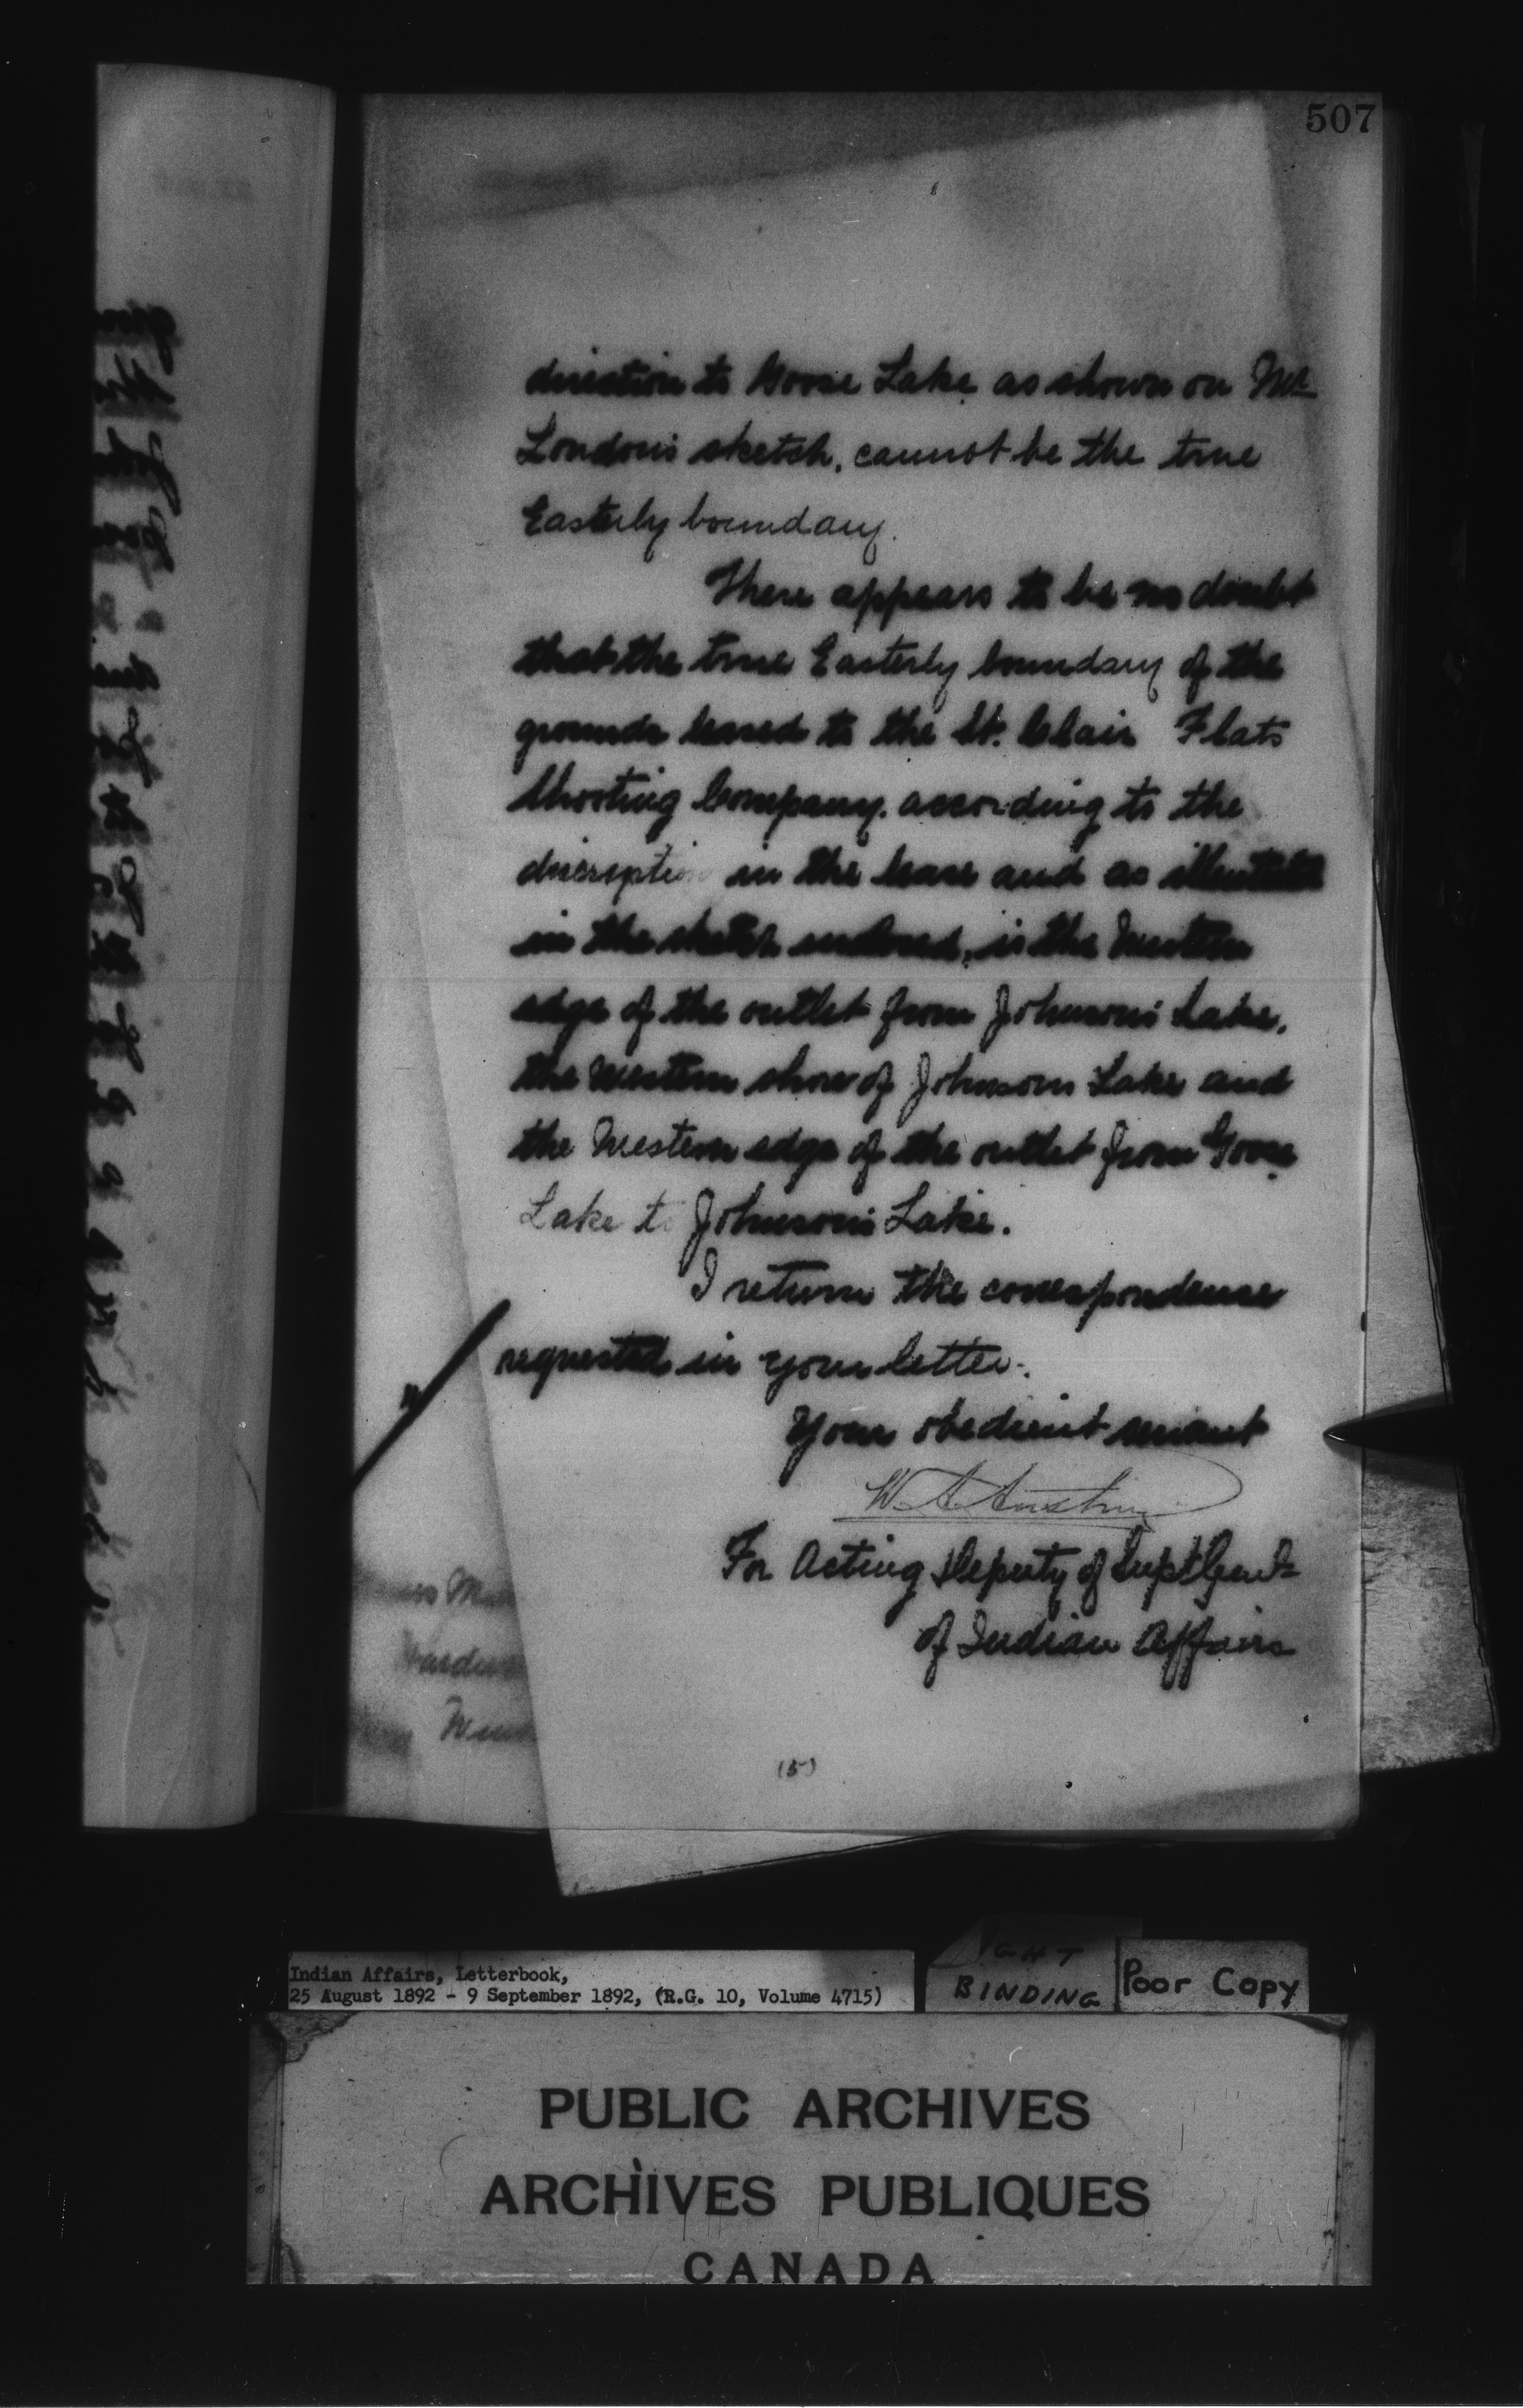 507
direction to Goose Lake as shown on Mr
London's sketch, cannot be the true
Easterly boundary.
There appears to be no doubt
that the true Easterly boundary of the
grounds leased to the St. Clair Flats
Shooting Company, according to the
discreption in the lease and as
in the sketch enclosed, is the Western
edge of the outlet from Johnson's Lake,
the Western shore of Johnsons Lake and
the Western edge of the outlet from Goose
Lake to Johnson's Lake.
I return the correspondence
requested in your letter.
Your obedient servant
W. A. Austin
For Acting Deputy of Supt Genl
of Indian Affairs
(5)
Indian Affairs, Letterbook,
25 August 1892 - 9 September 1892, (R.G. 10, Volume 4715)
BINDING
Poor Copy
PUBLIC ARCHIVES
ARCHIVES PUBLIQUES
CANADA